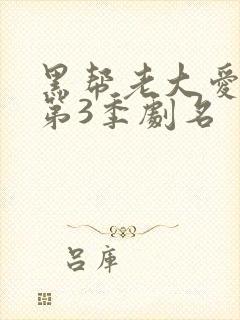 黑帮老大爱
第3季劇名
吕庫